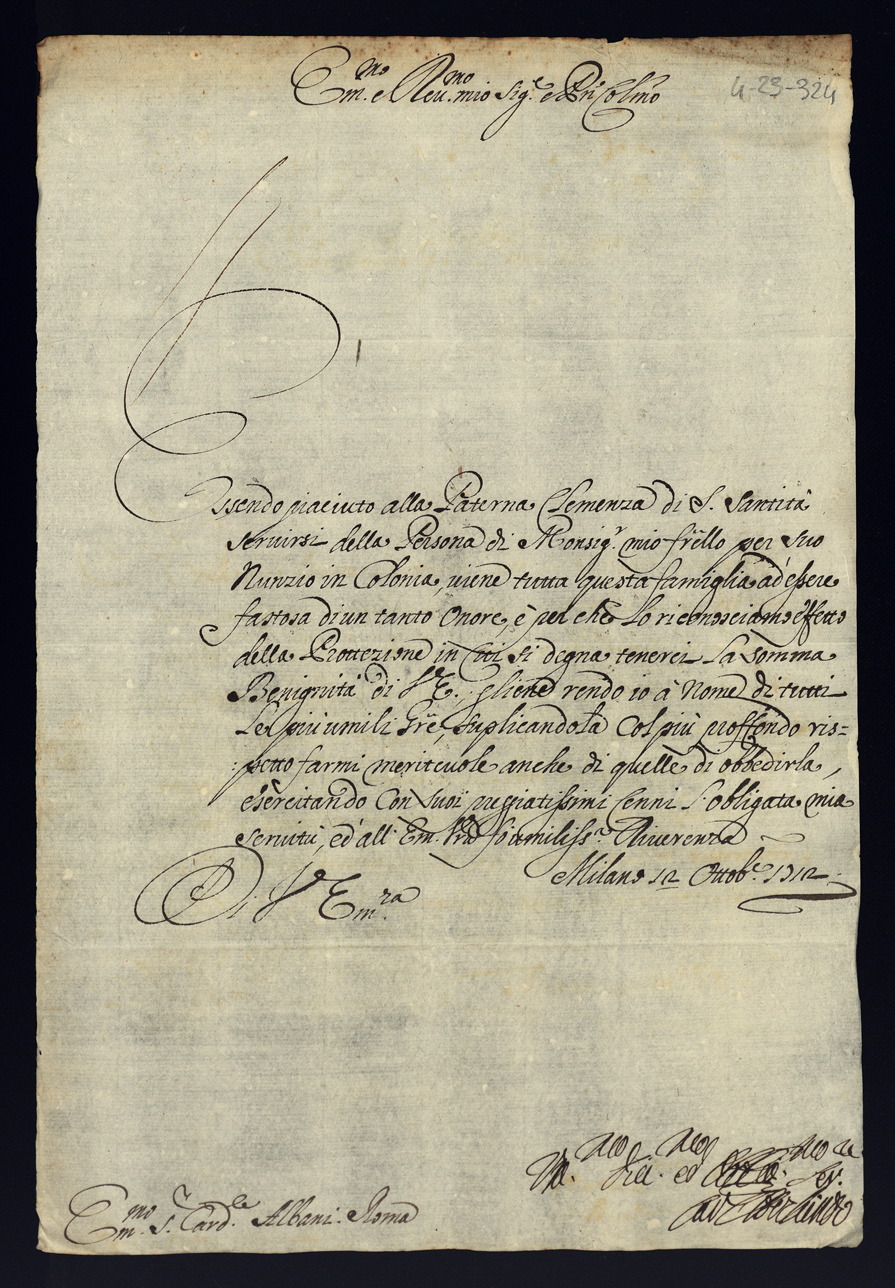 Em.mo e Reu.mo mio Sig.e e Prn Col.mo
4-23-324
Essendo piaciuto alla Paterna Clemenza di S. Santità
seruirsi della Persona di Monsig.r mio frello per suo
Nunzio in Colonia, uiene tutta questa famiglia ad' essere
fastosa di un tanto Onore, è perche lo riconosciamo effetto
della Prottezione in cui si degna tenerci la somma
Benignità di V.E., gliene rendo io à Nome di tutti
le più umili Gr̃e, suplicandola col più proffondo ris=
:petto farmi meriteuole anche di quelle di obbedirla,
esercitando con suoi pregiatissimi Cenni l'obligata mia
seruitù, ed' all' Em. Vra fò umiliss.a Riuerenza
Milano 12 Ottob.e 1712
Di V.E Em.ra
Vm.mo Diu. ed Ser.
Em.mo S.r Card.le Albani. Roma